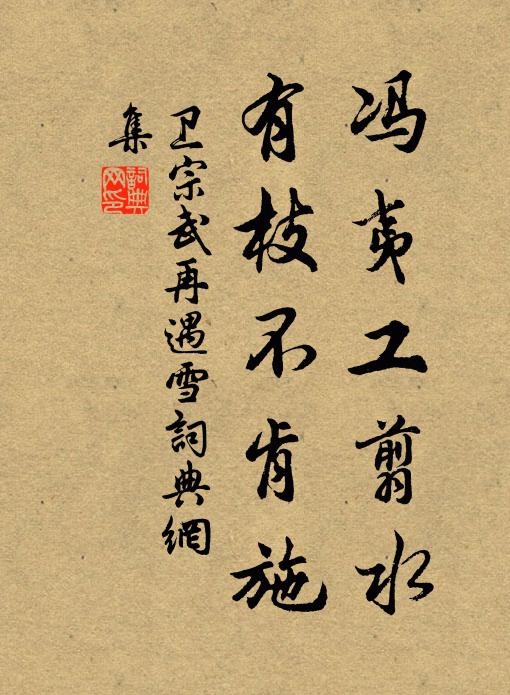 冯夷工剪水
有枝不肯施
卫宗武再遇雪詞典網
集
詞典
网印